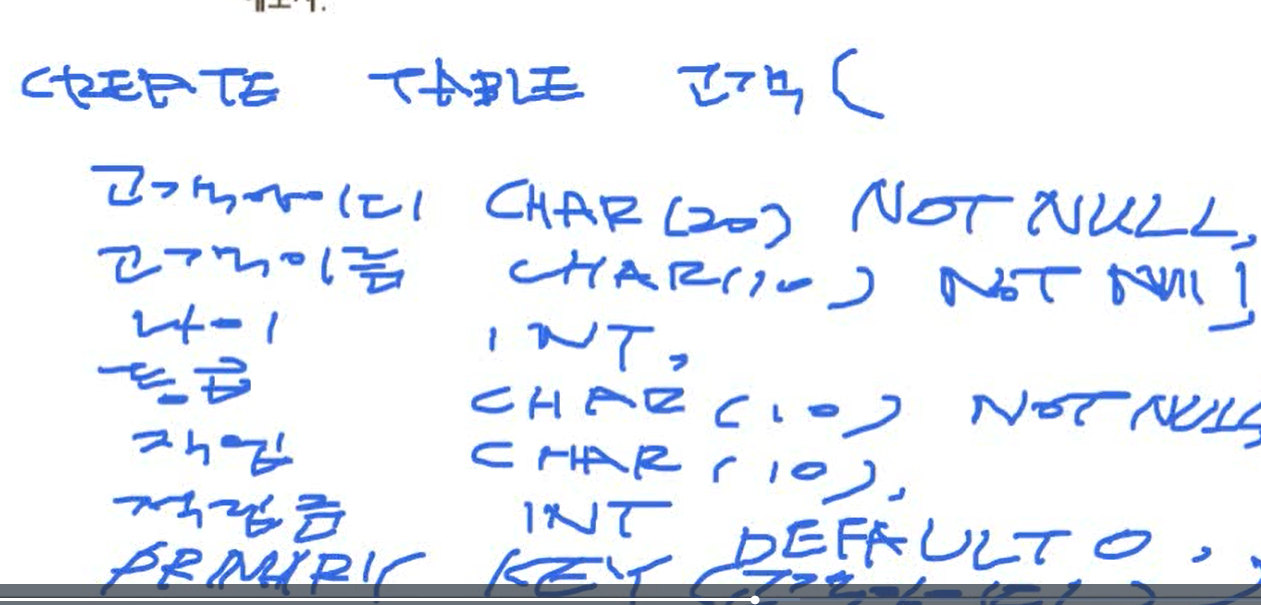 CREATE TABLE 고객(
고객아이디 CHAR(20) NOT NULL,
고객이름 CHAR(10) NOT NULL,
나이 INT,
등급 CHAR(10) NOT NULL
직업 CHAR(10),
적립금 INT DEFAULT 0,
PRIMARY KEY (고객아이디)